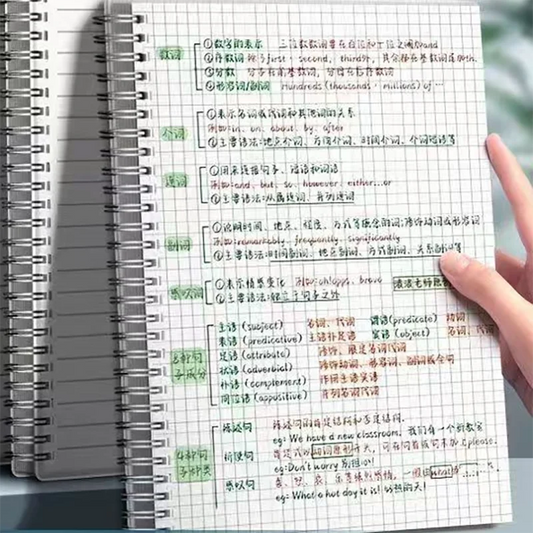 数词
①数字的表示 三位数数词要在百位和十位之间加and
②序数词 除了first、second、third外，其余都在基数词后加th
③分数 分子在前基数词，分母在后序数词
④形容词/副词 Hundreds (thousands、millions) of …
介词
①表示名词或代词和其他词的关系
例如:in、on、about、by、after
②主要语法:地点介词、方向介词、时间介词、介词短语等
连词
①用来连接句子、短语和词语
例如:and、but、so、however、either...or
②主要语法:从属连词、并列连词
副词
①说明时间、地点、程度、方式等概念的词;修饰动词或形容词
例如:remarkably、frequently、significantly
②主要语法:时间副词、地点副词、方式副词、关系副词等
感叹词
①表示情感变化 例如: bravo
②主要语法:独立于句子之外
句子成分
主语 (subject) 名词、代词 谓语(predicate) 动词
表语 (predicative) 主语补足语 宾语 (object) 名词、代
定语 (attribute) 修饰、限定名词代词
状语 (adverbial) 修饰动词、形容词、副词或全句
补语 (complement) 作用主语宾语
同位语 (appositive) 并列名词代词
句子种类
陈述句 陈述句的肯定结构和否定结构.
eg: We have a new classroom, 我们有一个新教室
祈使句 肯定式以动词原形开头，可在句首或句末加上please.
eg:Don't worry 别担心!
感叹句 喜、怒、哀、乐等强烈感情，一般由what
eg: What a hot day it is! 好热的天!